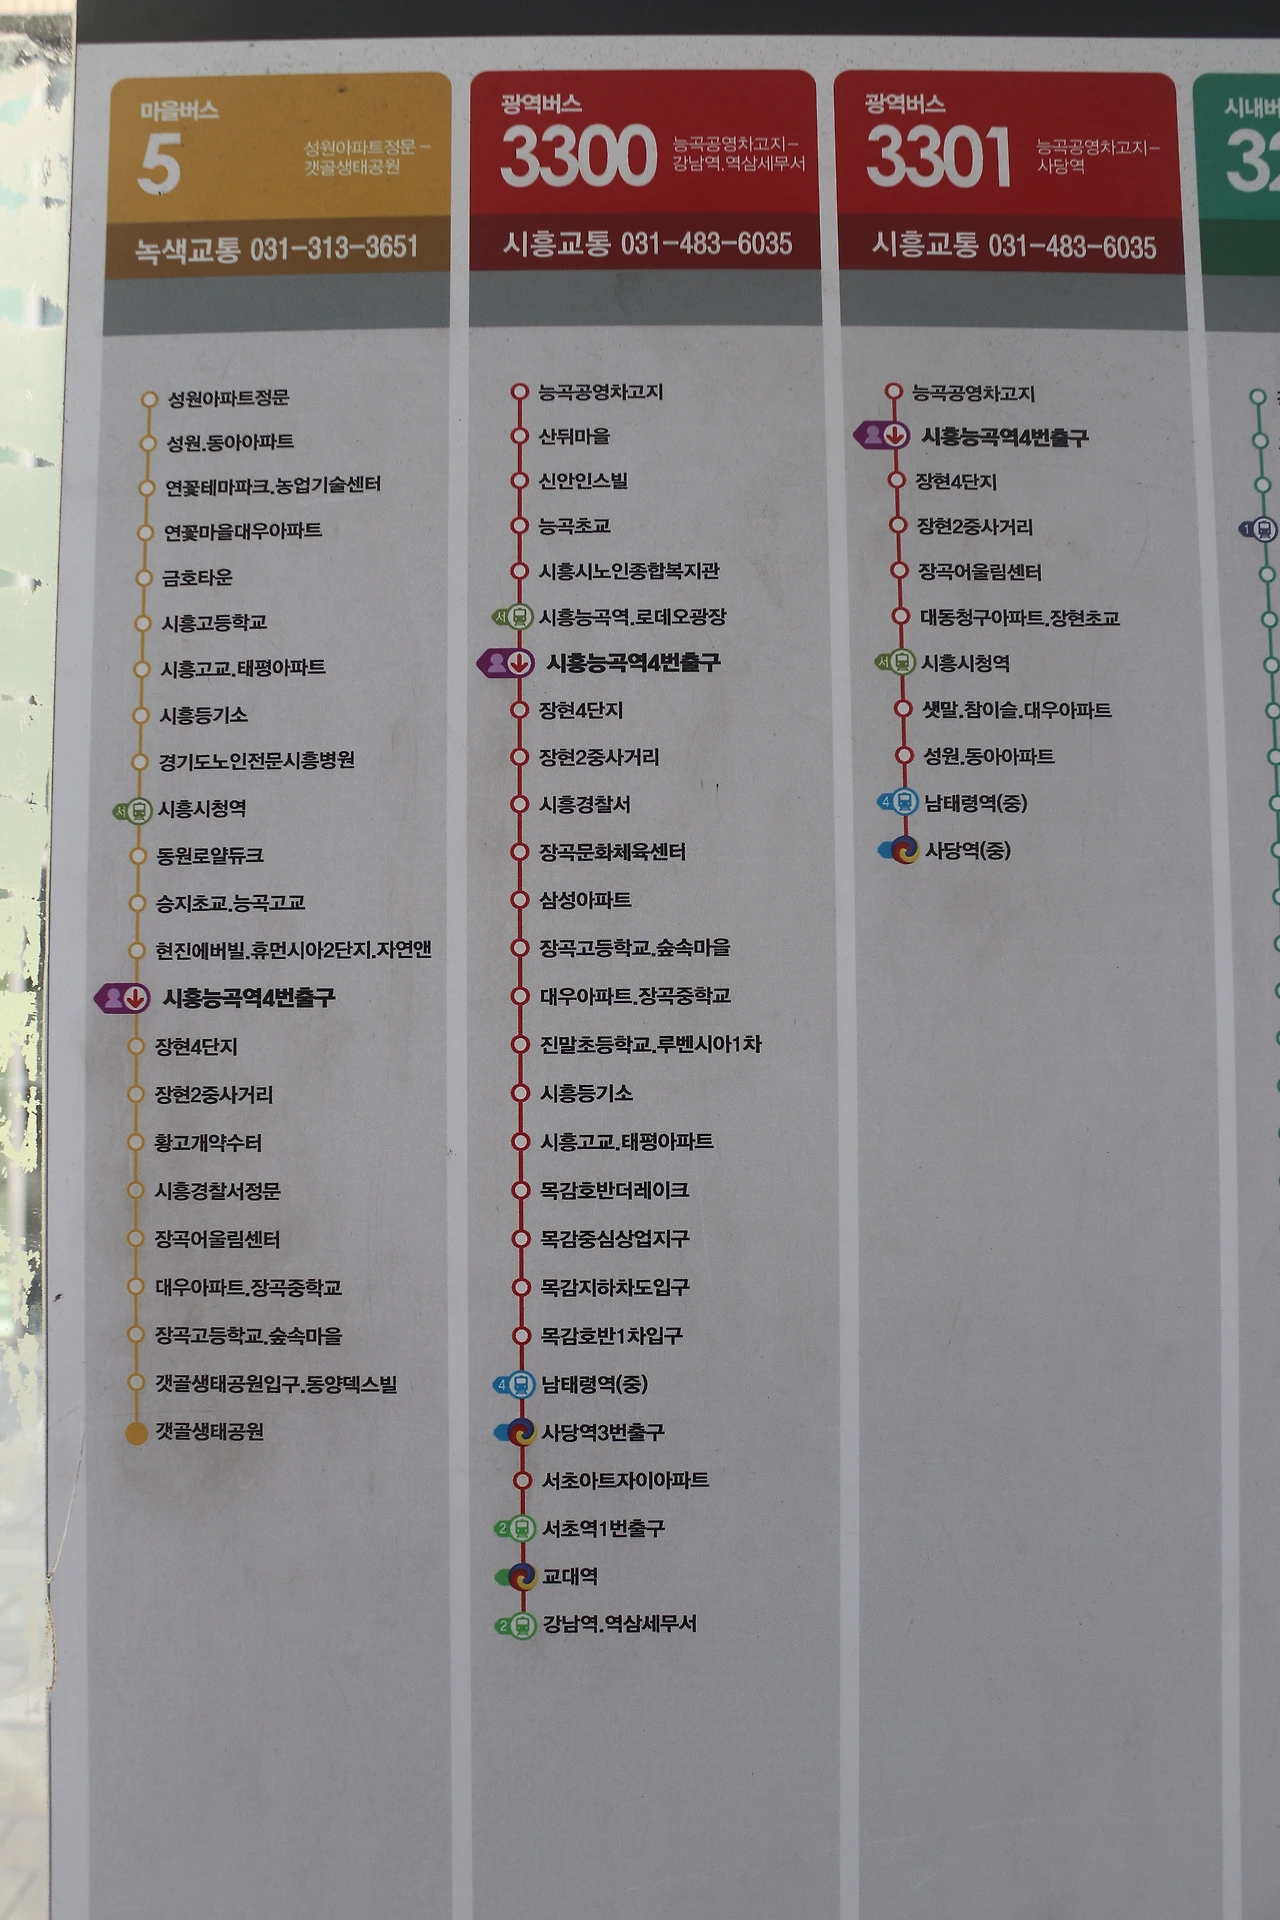 마을버스
5
성원아파트정문 –
갯골생태공원
녹색교통 031-313-3651
성원아파트정문
성원.동아아파트
연꽃테마파크.농업기술센터
연꽃마을대우아파트
금호타운
시흥고등학교
시흥고교.태평아파트
시흥등기소
경기도노인전문시흥병원
서 시흥시청역
동원로얄듀크
승지초교.능곡고교
현진에버빌.휴먼시아2단지.자연앤
시흥능곡역4번출구
장현4단지
장현2중사거리
황고개약수터
시흥경찰서정문
장곡어울림센터
대우아파트.장곡중학교
장곡고등학교.숲속마을
갯골생태공원입구.동양덱스빌
갯골생태공원
광역버스
3300
능곡공영차고지–
강남역.역삼세무서
시흥교통 031-483-6035
능곡공영차고지
산뒤마을
신안인스빌
능곡초교
시흥시노인종합복지관
서 시흥능곡역.로데오광장
시흥능곡역4번출구
장현4단지
장현2중사거리
시흥경찰서
장곡문화체육센터
삼성아파트
장곡고등학교.숲속마을
대우아파트.장곡중학교
진말초등학교.루벤시아1차
시흥등기소
시흥고교.태평아파트
목감호반더레이크
목감중심상업지구
목감지하차도입구
목감호반1차입구
4 남태령역(중)
사당역3번출구
서초아트자이아파트
2 서초역1번출구
교대역
2 강남역.역삼세무서
광역버스
3301
능곡공영차고지–
사당역
시흥교통 031-483-6035
능곡공영차고지
시흥능곡역4번출구
장현4단지
장현2중사거리
장곡어울림센터
대동청구아파트.장현초교
서 시흥시청역
샛말.참이슬.대우아파트
성원.동아아파트
4 남태령역(중)
사당역(중)
시내버
32
1